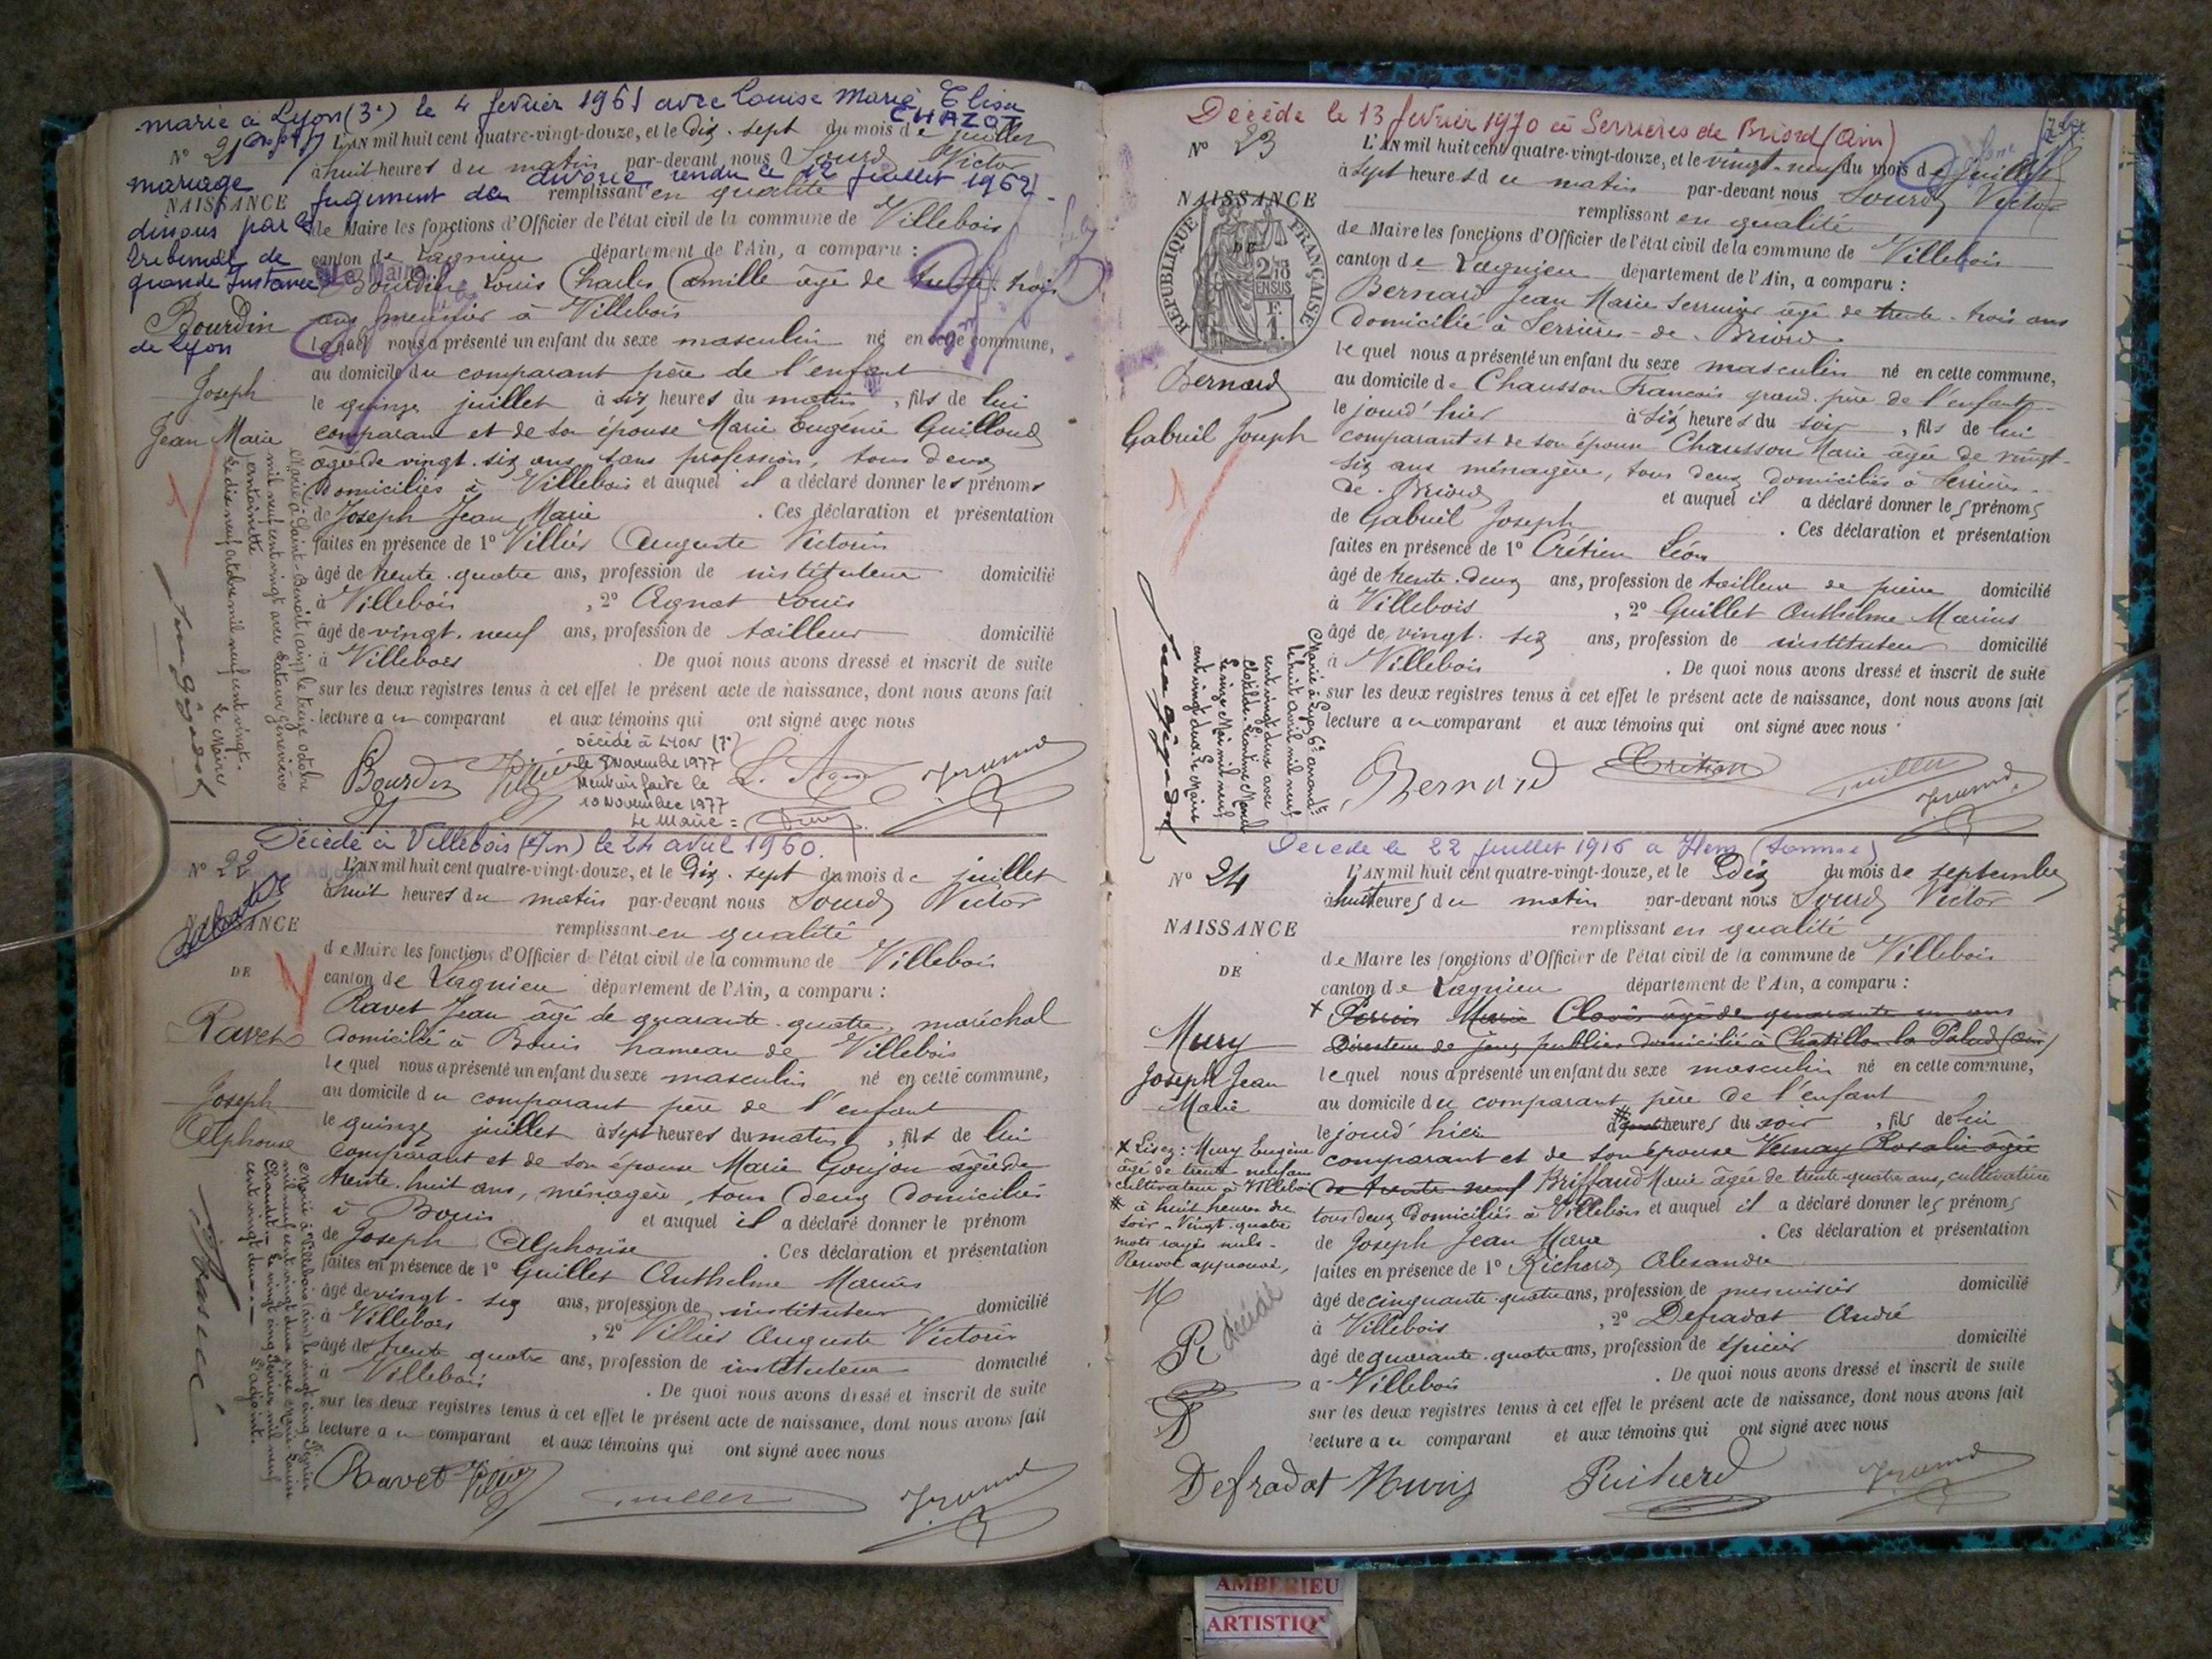 marié à Lyon (3e) le 4 février 1961 avec Louise Marie Elisa
CHAZOT
N° 21
L'AN mil huit cent quatre-vingt-douze, et le Dix-sept du mois de juillet
à huit heures du matin par-devant nous Sourd Victor
mariage
jugement de divorce rendu le 12 juillet 1962
NAISSANCE
remplissant en qualité
dissous par le
de Maire les fonctions d'Officier de l'état civil de la commune de Villebois
tribunal de
canton de Lagnieu département de l'Ain, a comparu :
grande Instance
Bourdin Louis Charles Camille âgé de trente-trois
de Lyon
Bourdin
ans meunier à Villebois
lequel nous a présenté un enfant du sexe masculin né en cette commune,
au domicile du comparant père de l'enfant
Joseph
le quinze juillet à six heures du matin, fils de lui
Jean Marie
comparant et de son épouse Marie Eugénie Guilloud
âgée de vingt-six ans, sans profession, tous deux
domiciliés à Villebois et auquel il a déclaré donner les prénoms
de Joseph Jean Marie. Ces déclaration et présentation
faites en présence de 1° Villier Auguste Victorin
âgé de trente-quatre ans, profession de instituteur domicilié
à Villebois, 2° Agnat Louis
âgé de vingt-neuf ans, profession de tailleur domicilié
à Villebois. De quoi nous avons dressé et inscrit de suite
sur les deux registres tenus à cet effet le présent acte de naissance, dont nous avons fait
lecture au comparant et aux témoins qui ont signé avec nous
Marié à Saint-Benoit (Ain) le treize octobre
mil neuf cent vingt avec Latour Geneviève
Antoinette
Le dix neuf octobre mil neuf cent vingt.
Le Maire
Décédé à LYON (7e)
le 7 Novembre 1977
Mention faite le
10 Novembre 1977
Le Maire =
Bourdin
Décédé à Villebois (Ain) le 24 avril 1960.
N° 22
L'AN mil huit cent quatre-vingt-douze, et le Dix-sept du mois de juillet
à huit heures du matin par-devant nous Sourd Victor
NAISSANCE
remplissant en qualité
de Maire les fonctions d'Officier de l'état civil de la commune de Villebois
DE
canton de Lagnieu département de l'Ain, a comparu :
Ravet Jean âgé de quarante-quatre, maréchal
Ravet
domicilié à Bouis hameau de Villebois
lequel nous a présenté un enfant du sexe masculin né en cette commune,
au domicile du comparant père de l'enfant
Joseph
le quinze juillet à sept heures du matin, fils de lui
Alphonse
comparant et de son épouse Marie Goujon âgée de
trente-huit ans, ménagère, tous deux domiciliés
à Bouis et auquel il a déclaré donner le prénom
de Joseph Alphonse. Ces déclaration et présentation
faites en présence de 1° Guillet Anthelme Marius
âgé de vingt-six ans, profession de instituteur domicilié
à Villebois, 2° Villier Auguste Victorin
âgé de trente quatre ans, profession de instituteur domicilié
à Villebois. De quoi nous avons dressé et inscrit de suite
sur les deux registres tenus à cet effet le présent acte de naissance, dont nous avons fait
lecture au comparant et aux témoins qui ont signé avec nous
Marié à Villebois (Ain) le vingt cinq février
mil neuf cent vingt deux avec Marie Louise
Le vingt cinq février mil neuf
cent vingt deux
L'adjoint.
Ravet
Décédé le 13 février 1970 à Serrières de Briord (Ain)
N° 23
L'AN mil huit cent quatre-vingt-douze, et le vingt-neuf du mois de juillet
à sept heures du matin par-devant nous Sourd Victor
NAISSANCE
DE
RÉPUBLIQUE FRANÇAISE
remplissant en qualité
de Maire les fonctions d'Officier de l'état civil de la commune de Villebois
canton de Lagnieu département de l'Ain, a comparu :
Bernard Jean Marie Serrurier âgé de trente-trois ans
domicilié à Serrières-de-Briord
lequel nous a présenté un enfant du sexe masculin né en cette commune,
Bernard
au domicile de Chausson François grand-père de l'enfant
le jourd'hier à six heures du soir, fils de lui
Gabriel Joseph
comparant et de son épouse Chausson Marie âgée de vingt-
six ans ménagère, tous deux domiciliés à Serrières-
de-Briord et auquel il a déclaré donner les prénoms
de Gabriel Joseph. Ces déclaration et présentation
faites en présence de 1° Crétien Léon
âgé de trente-deux ans, profession de tailleur de pierre domicilié
à Villebois, 2° Guillet Anthelme Marius
âgé de vingt-six ans, profession de instituteur domicilié
à Villebois. De quoi nous avons dressé et inscrit de suite
sur les deux registres tenus à cet effet le présent acte de naissance, dont nous avons fait
lecture au comparant et aux témoins qui ont signé avec nous
Marié à Lyon 6e arrondt
le huit avril mil neuf
cent vingt deux avec
Le onze Mai mil neuf
cent vingt deux. Le Maire
Bernard Crétien Guillet
Décédé le 22 juillet 1916 à Hem (Somme)
N° 24
L'AN mil huit cent quatre-vingt-douze, et le Dix du mois de septembre
à huit heures du matin par-devant nous Sourd Victor
NAISSANCE
remplissant en qualité
de Maire les fonctions d'Officier de l'état civil de la commune de Villebois
DE
canton de Lagnieu département de l'Ain, a comparu :
x Perrin Marie Clovis âgé de quarante un ans
Mury
Directeur de jeux publics domicilié à Chatillon la Palud (Ain)
Joseph Jean
lequel nous a présenté un enfant du sexe masculin né en cette commune,
Marie
au domicile du comparant père de l'enfant
le jourd'hier # heures du soir, fils de lui
x Lisez : Mury Eugène
âgé de trente neuf ans
cultivateur à Villebois
# à huit heures du
soir - Vingt-quatre
mots rayés nuls -
Renvoi approuvé,
comparant et de son épouse Vernay Rosalie âgée
de trente-neuf Briffaud Marie âgée de trente-quatre ans, cultivatrice
tous deux domiciliés à Villebois et auquel il a déclaré donner les prénoms
de Joseph Jean Marie. Ces déclaration et présentation
faites en présence de 1° Richard Alexandre
âgé de cinquante-quatre ans, profession de menuisier domicilié
à Villebois, 2° Defradat André
âgé de quarante-quatre ans, profession de épicier domicilié
à Villebois. De quoi nous avons dressé et inscrit de suite
sur les deux registres tenus à cet effet le présent acte de naissance, dont nous avons fait
lecture au comparant et aux témoins qui ont signé avec nous
décédé
Defradat Mury Richard
AMBERIEU
ARTISTIQ